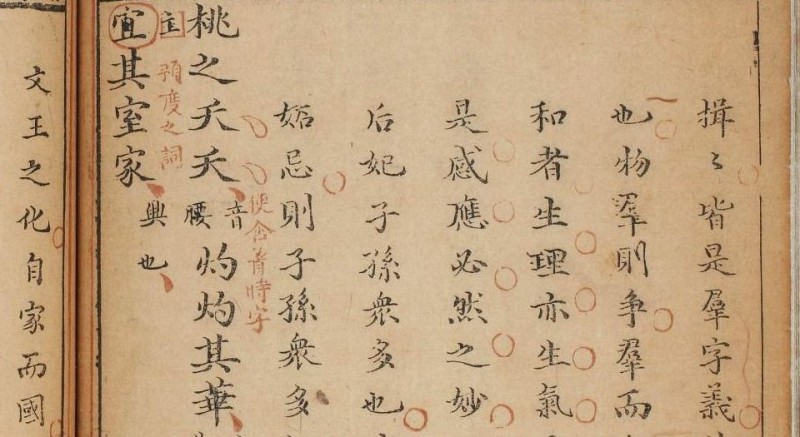 揖〻皆是羣字義
也物羣則爭羣而
和者生理亦生氣
是感應必然之妙
后妃子孫衆多也
妬忌則子孫衆多
桃之夭夭音腰灼灼其華
便含著時字
宜其室家興也
預度之詞
文王之化自家而國